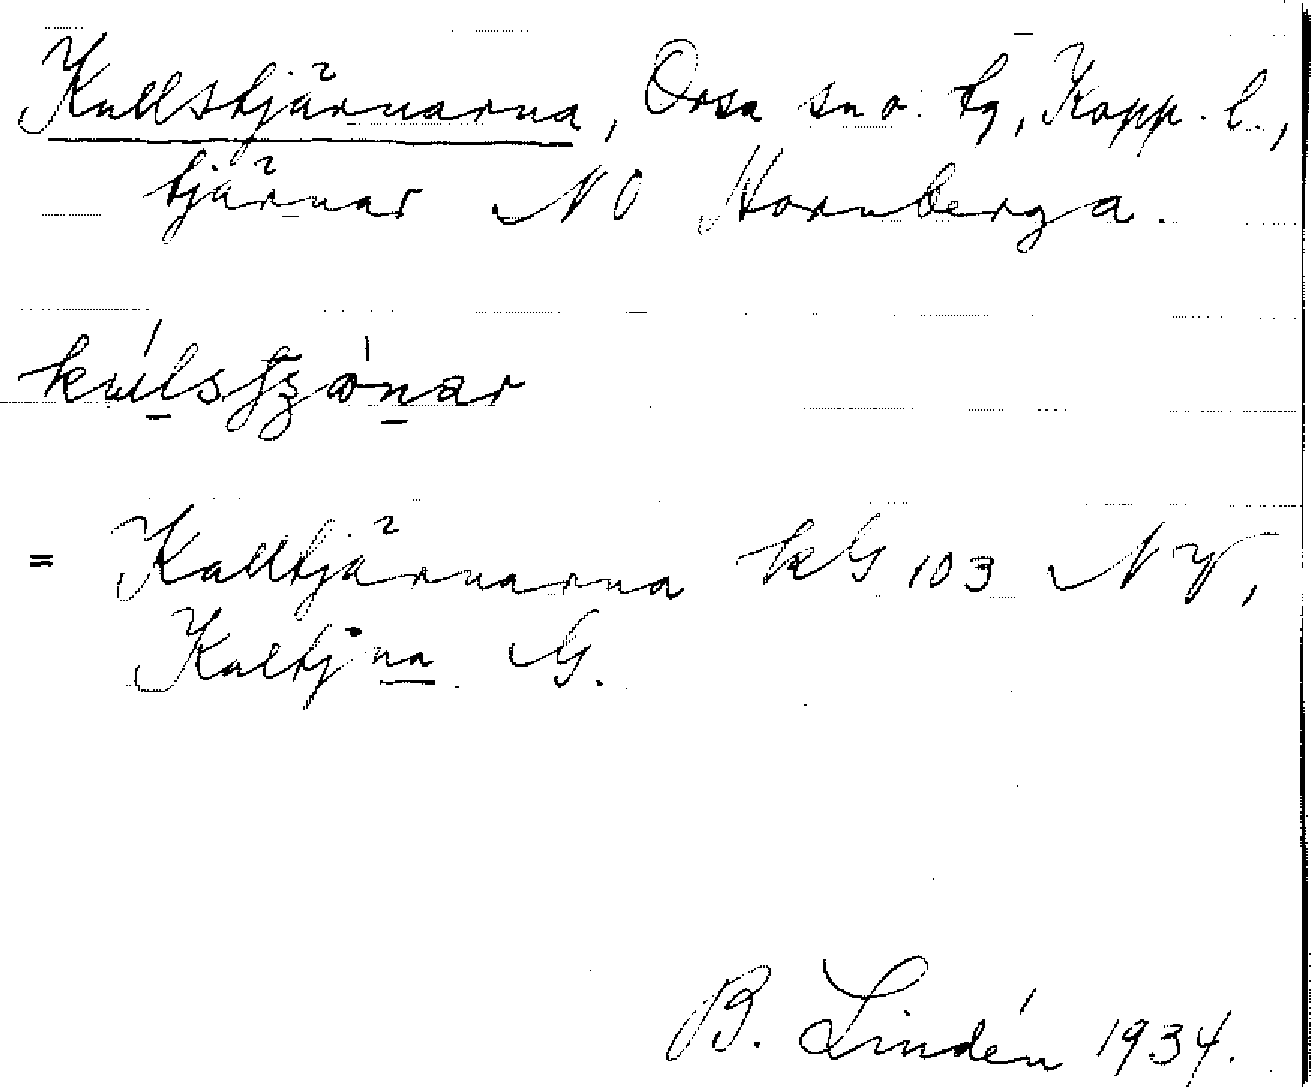 Kallstjärnarna, Orsa sn o. tg, Kopp. l.,
tjärnar NO Hornberga.
= Kalltjärnarna kG 103 NV,
Kaltjna G.
B. Lindén 1934.